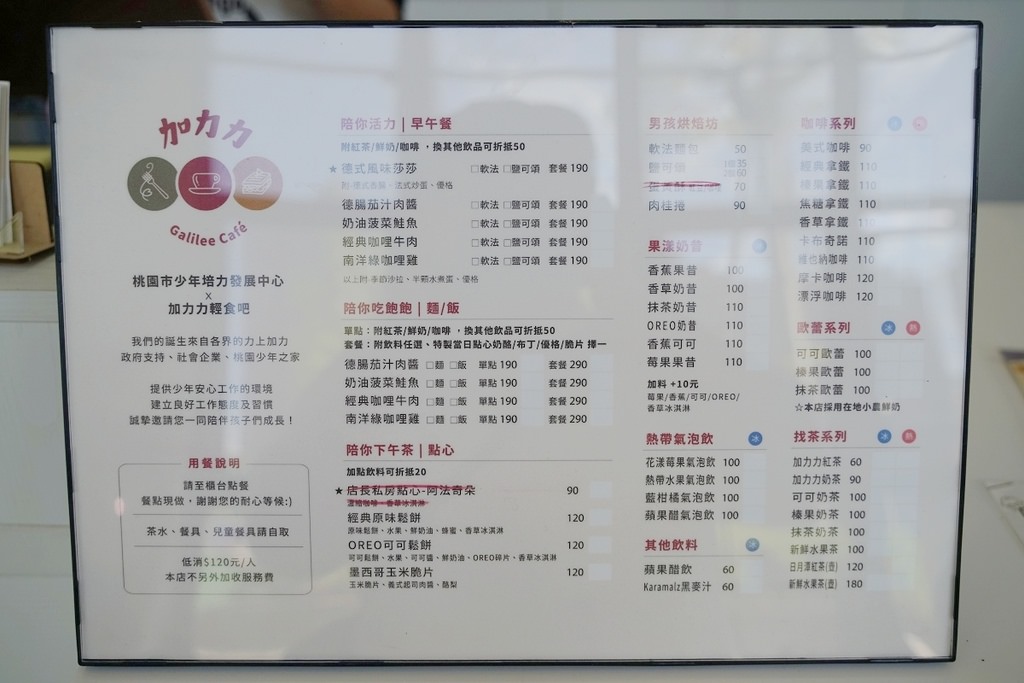 加力力
Galilee Café
桃園市少年培力發展中心
x
加力力輕食吧
我們的誕生來自各界的力上加力
政府支持、社會企業、桃園少年之家
提供少年安心工作的環境
建立良好工作態度及習慣
誠摯邀請您一同陪伴孩子們成長！
用餐說明
請至櫃台點餐
餐點現做，謝謝您的耐心等候:)
茶水、餐具、兒童餐具請自取
低消$120元/人
本店不另外加收服務費
陪你活力 | 早午餐
附紅茶/鮮奶/咖啡 ，換其他飲品可折抵50
★ 德式風味莎莎 □軟法 □鹽可頌 套餐 190
附·德式香腸、法式炒蛋、優格
德腸茄汁肉醬 □軟法 □鹽可頌 套餐 190
奶油菠菜鮭魚 □軟法 □鹽可頌 套餐 190
經典咖哩牛肉 □軟法 □鹽可頌 套餐 190
南洋綠咖哩雞 □軟法 □鹽可頌 套餐 190
以上附·季節沙拉、半顆水煮蛋、優格
陪你吃飽飽 | 麵/飯
單點：附紅茶/鮮奶/咖啡 ，換其他飲品可折抵50
套餐：附飲料任選、特製當日點心奶酪/布丁/優格/脆片 擇一
德腸茄汁肉醬 □麵 □飯 單點 190 套餐 290
奶油菠菜鮭魚 □麵 □飯 單點 190 套餐 290
經典咖哩牛肉 □麵 □飯 單點 190 套餐 290
南洋綠咖哩雞 □麵 □飯 單點 190 套餐 290
陪你下午茶 | 點心
加點飲料可折抵20
★ 店長私房點心-阿法奇朵 90
濃縮咖啡、香草冰淇淋
經典原味鬆餅 120
原味鬆餅、水果、鮮奶油、蜂蜜、香草冰淇淋
OREO可可鬆餅 120
可可鬆餅、水果、可可醬、鮮奶油、OREO碎片、香草冰淇淋
墨西哥玉米脆片 120
玉米脆片、義式起司肉醬、酪梨
男孩烘焙坊
軟法麵包 50
鹽可頌 1個35
2個60
70
肉桂捲 90
果漾奶昔
香蕉果昔 100
香草奶昔 100
抹茶奶昔 110
OREO奶昔 110
香蕉可可 110
莓果果昔 110
加料 +10元
莓果/香蕉/可可/OREO/
香草冰淇淋
熱帶氣泡飲 冰
花漾莓果氣泡飲 100
熱帶水果氣泡飲 100
藍柑橘氣泡飲 100
蘋果醋氣泡飲 100
其他飲料 冰
蘋果醋飲 60
Karamalz黑麥汁 60
咖啡系列 冰 熱
美式咖啡 90
經典拿鐵 110
榛果拿鐵 110
焦糖拿鐵 110
香草拿鐵 110
卡布奇諾 110
維也納咖啡 110
摩卡咖啡 120
漂浮咖啡 120
歐蕾系列 冰 熱
可可歐蕾 100
榛果歐蕾 100
抹茶歐蕾 100
☆本店採用在地小農鮮奶
找茶系列 冰 熱
加力力紅茶 60
加力力奶茶 90
可可奶茶 100
榛果奶茶 100
抹茶奶茶 100
新鮮水果茶 100
日月潭紅茶(壺) 120
新鮮水果茶(壺) 180